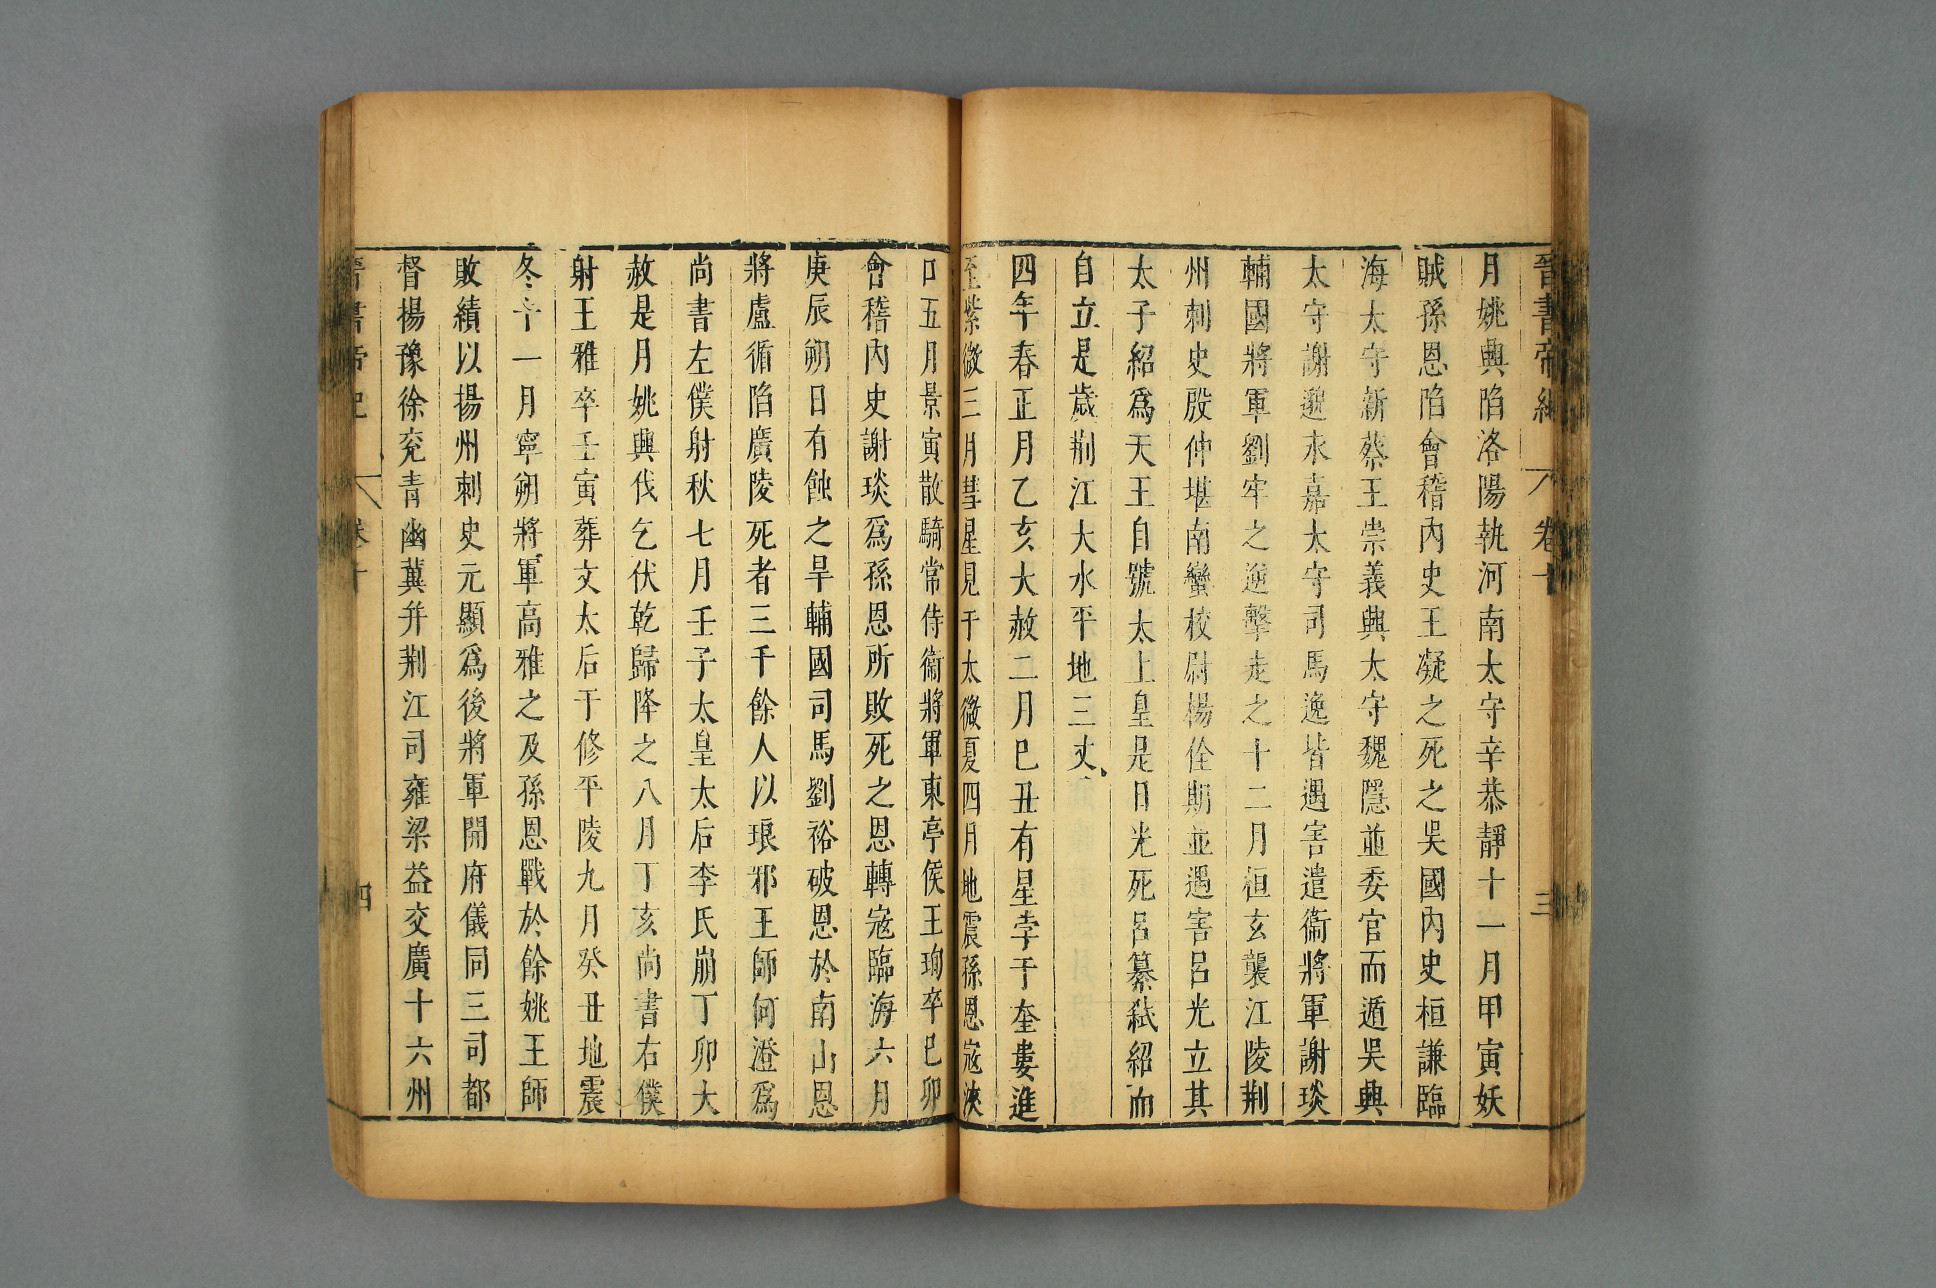 晉書帝紀 卷十 三
月姚興陷洛陽執河南太守辛恭靜十一月甲寅妖
賊孫恩陷會稽內史王凝之死之吳國內史桓謙臨
海太守新蔡王崇義興太守魏隱並委官而遁吳興
太守謝邈永嘉太守司馬逸皆遇害遣衞將軍謝琰
輔國將軍劉牢之逆擊走之十二月桓玄襲江陵荆
州刺史殷仲堪南蠻校尉楊佺期並遇害呂光立其
太子紹爲天王自號太上皇是日光死呂纂弑紹而
自立是歲荆江大水平地三丈
四年春正月乙亥大赦二月巳丑有星孛于奎婁進
至紫微三月彗星見于太微夏四月地震孫恩寇浹
口五月景寅散騎常侍衞將軍東亭侯王珣卒巳卯
會稽內史謝琰爲孫恩所敗死之恩轉寇臨海六月
庚辰朔日有蝕之旱輔國司馬劉裕破恩於南山恩
將盧循陷廣陵死者三千餘人以琅邪王師何澄爲
尚書左僕射秋七月壬子太皇太后李氏崩丁卯大
赦是月姚興伐乞伏乾歸降之八月丁亥尚書右僕
射王雅卒壬寅葬文太后于修平陵九月癸丑地震
冬十一月寧朔將軍高雅之及孫恩戰於餘姚王師
敗績以揚州刺史元顯爲後將軍開府儀同三司都
督揚豫徐兗青幽冀并荆江司雍梁益交廣十六州
晉書帝紀 卷十 四